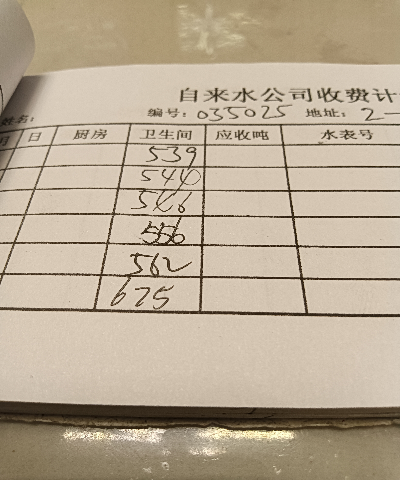 自来水公司收费计
姓名： 编号：035025 地址：2-
月 日 厨房 卫生间 应收吨 水表号
539
544
546
556
562
675